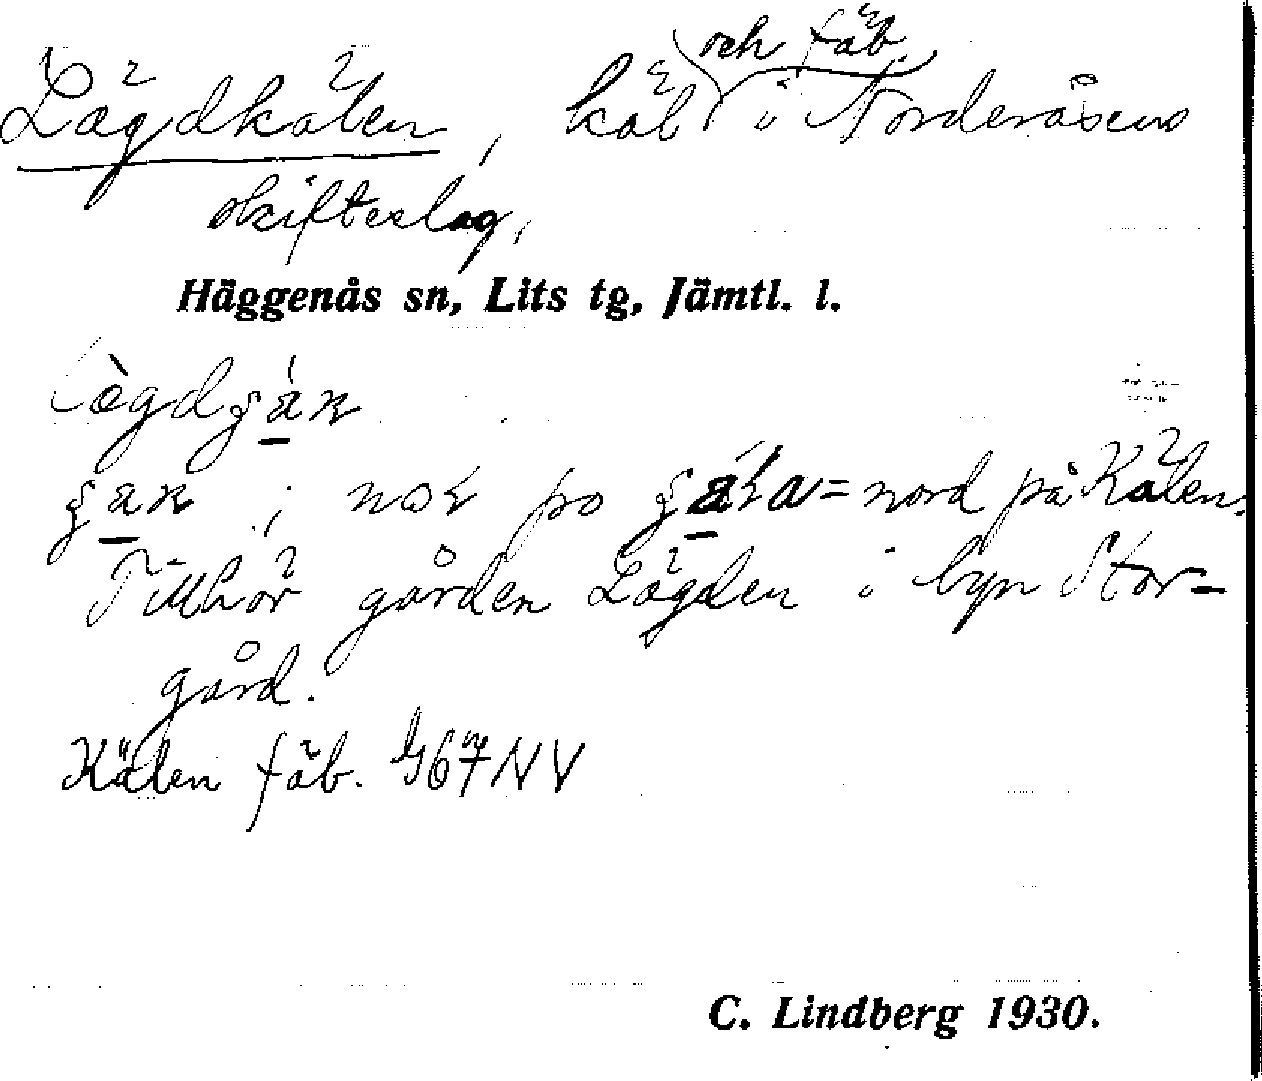 Lägdkälen, käl och fäb. i Norderåsens
skifteslag,
Häggenås sn, Lits tg, Jämtl. l.
nord på Kälen.
Tillhör gården Lägden i byn Stor-
gård.
Kälen fäb. G67NV
C. Lindberg 1930.